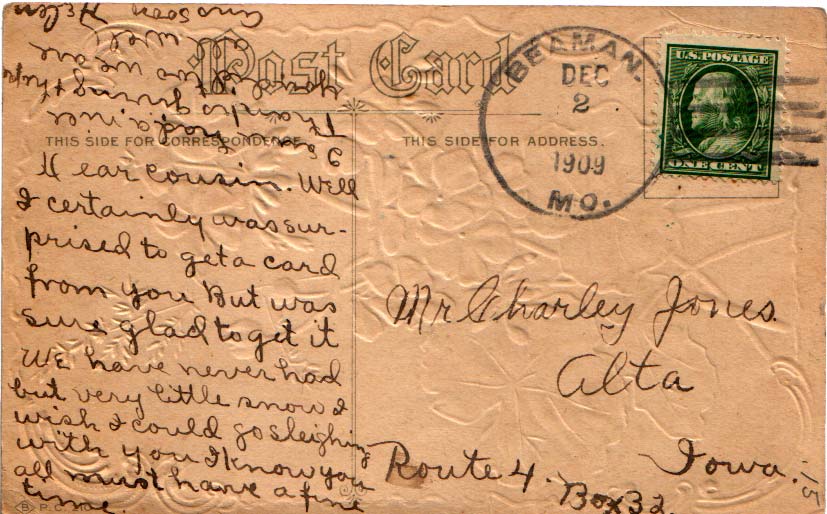 Post Card
THIS SIDE FOR CORRESPONDENCE.
THIS SIDE FOR ADDRESS.
BEAMAN.
DEC
2
1909
MO.
U.S. POSTAGE
ONE CENT
Dear cousin. Well
I certainly was sur-
prised to get a card
from you But was
sure glad to get it
We have never had
but very little snow I
wish I could go sleighing
with you I know you
all must have a fine
time.
Mr Charley Jones.
Alta
Route 4.
Iowa.
Box 32.
15
B P.C.
well